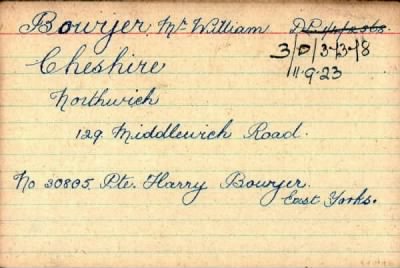 Bowyer, Mr William
3/0/3-3-8
Cheshire
11.9.23
Northwich
129 Middlewich Road.
No 30805 Pte. Harry Bowyer.
East Yorks.